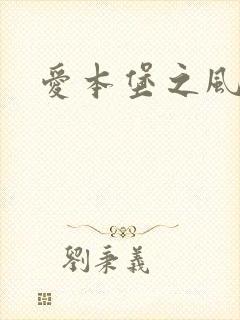 愛本堡之風
劉秉義